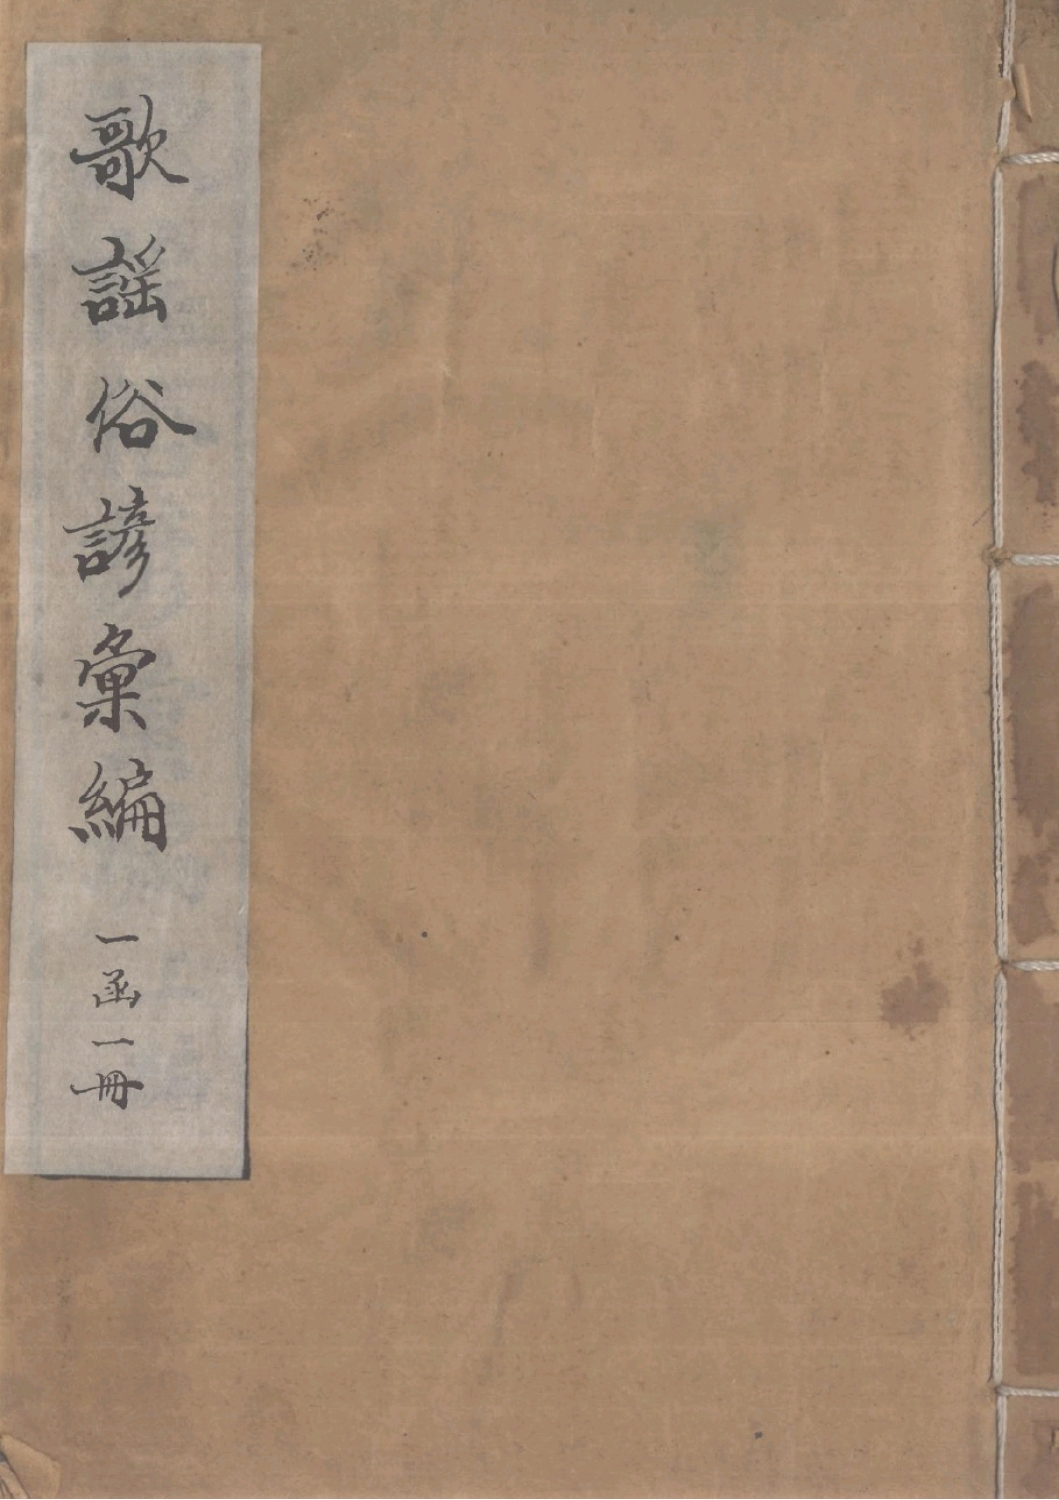 歌謠俗諺彙編 一函一冊